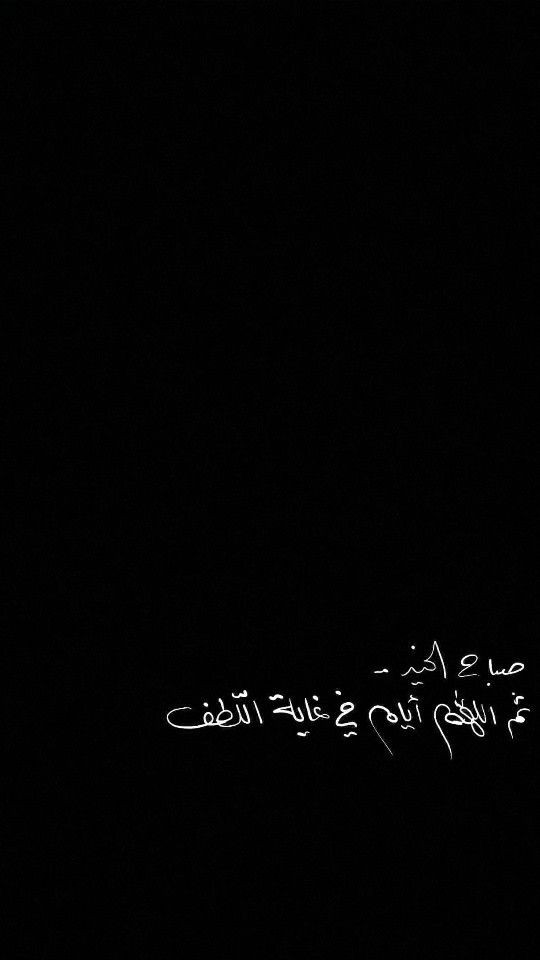 صباح الخير -
ثم اللهم أيام في غاية اللطف